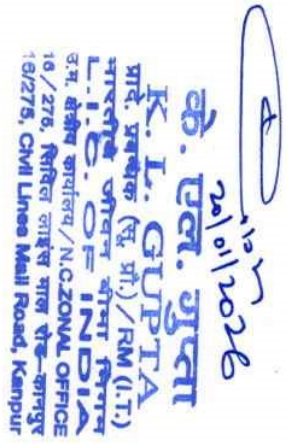 20/01/2026
के. एल. गुप्ता
K. L. GUPTA
प्रादे. प्रबंधक (सू. प्रौ.) / RM (I.T.)
भारतीय जीवन बीमा निगम
L.I.C. OF INDIA
उ.म. क्षेत्रीय कार्यालय / N.C.ZONAL OFFICE
16/275, सिविल लाइंस माल रोड-कानपुर
16/275, Civil Lines Mall Road, Kanpur